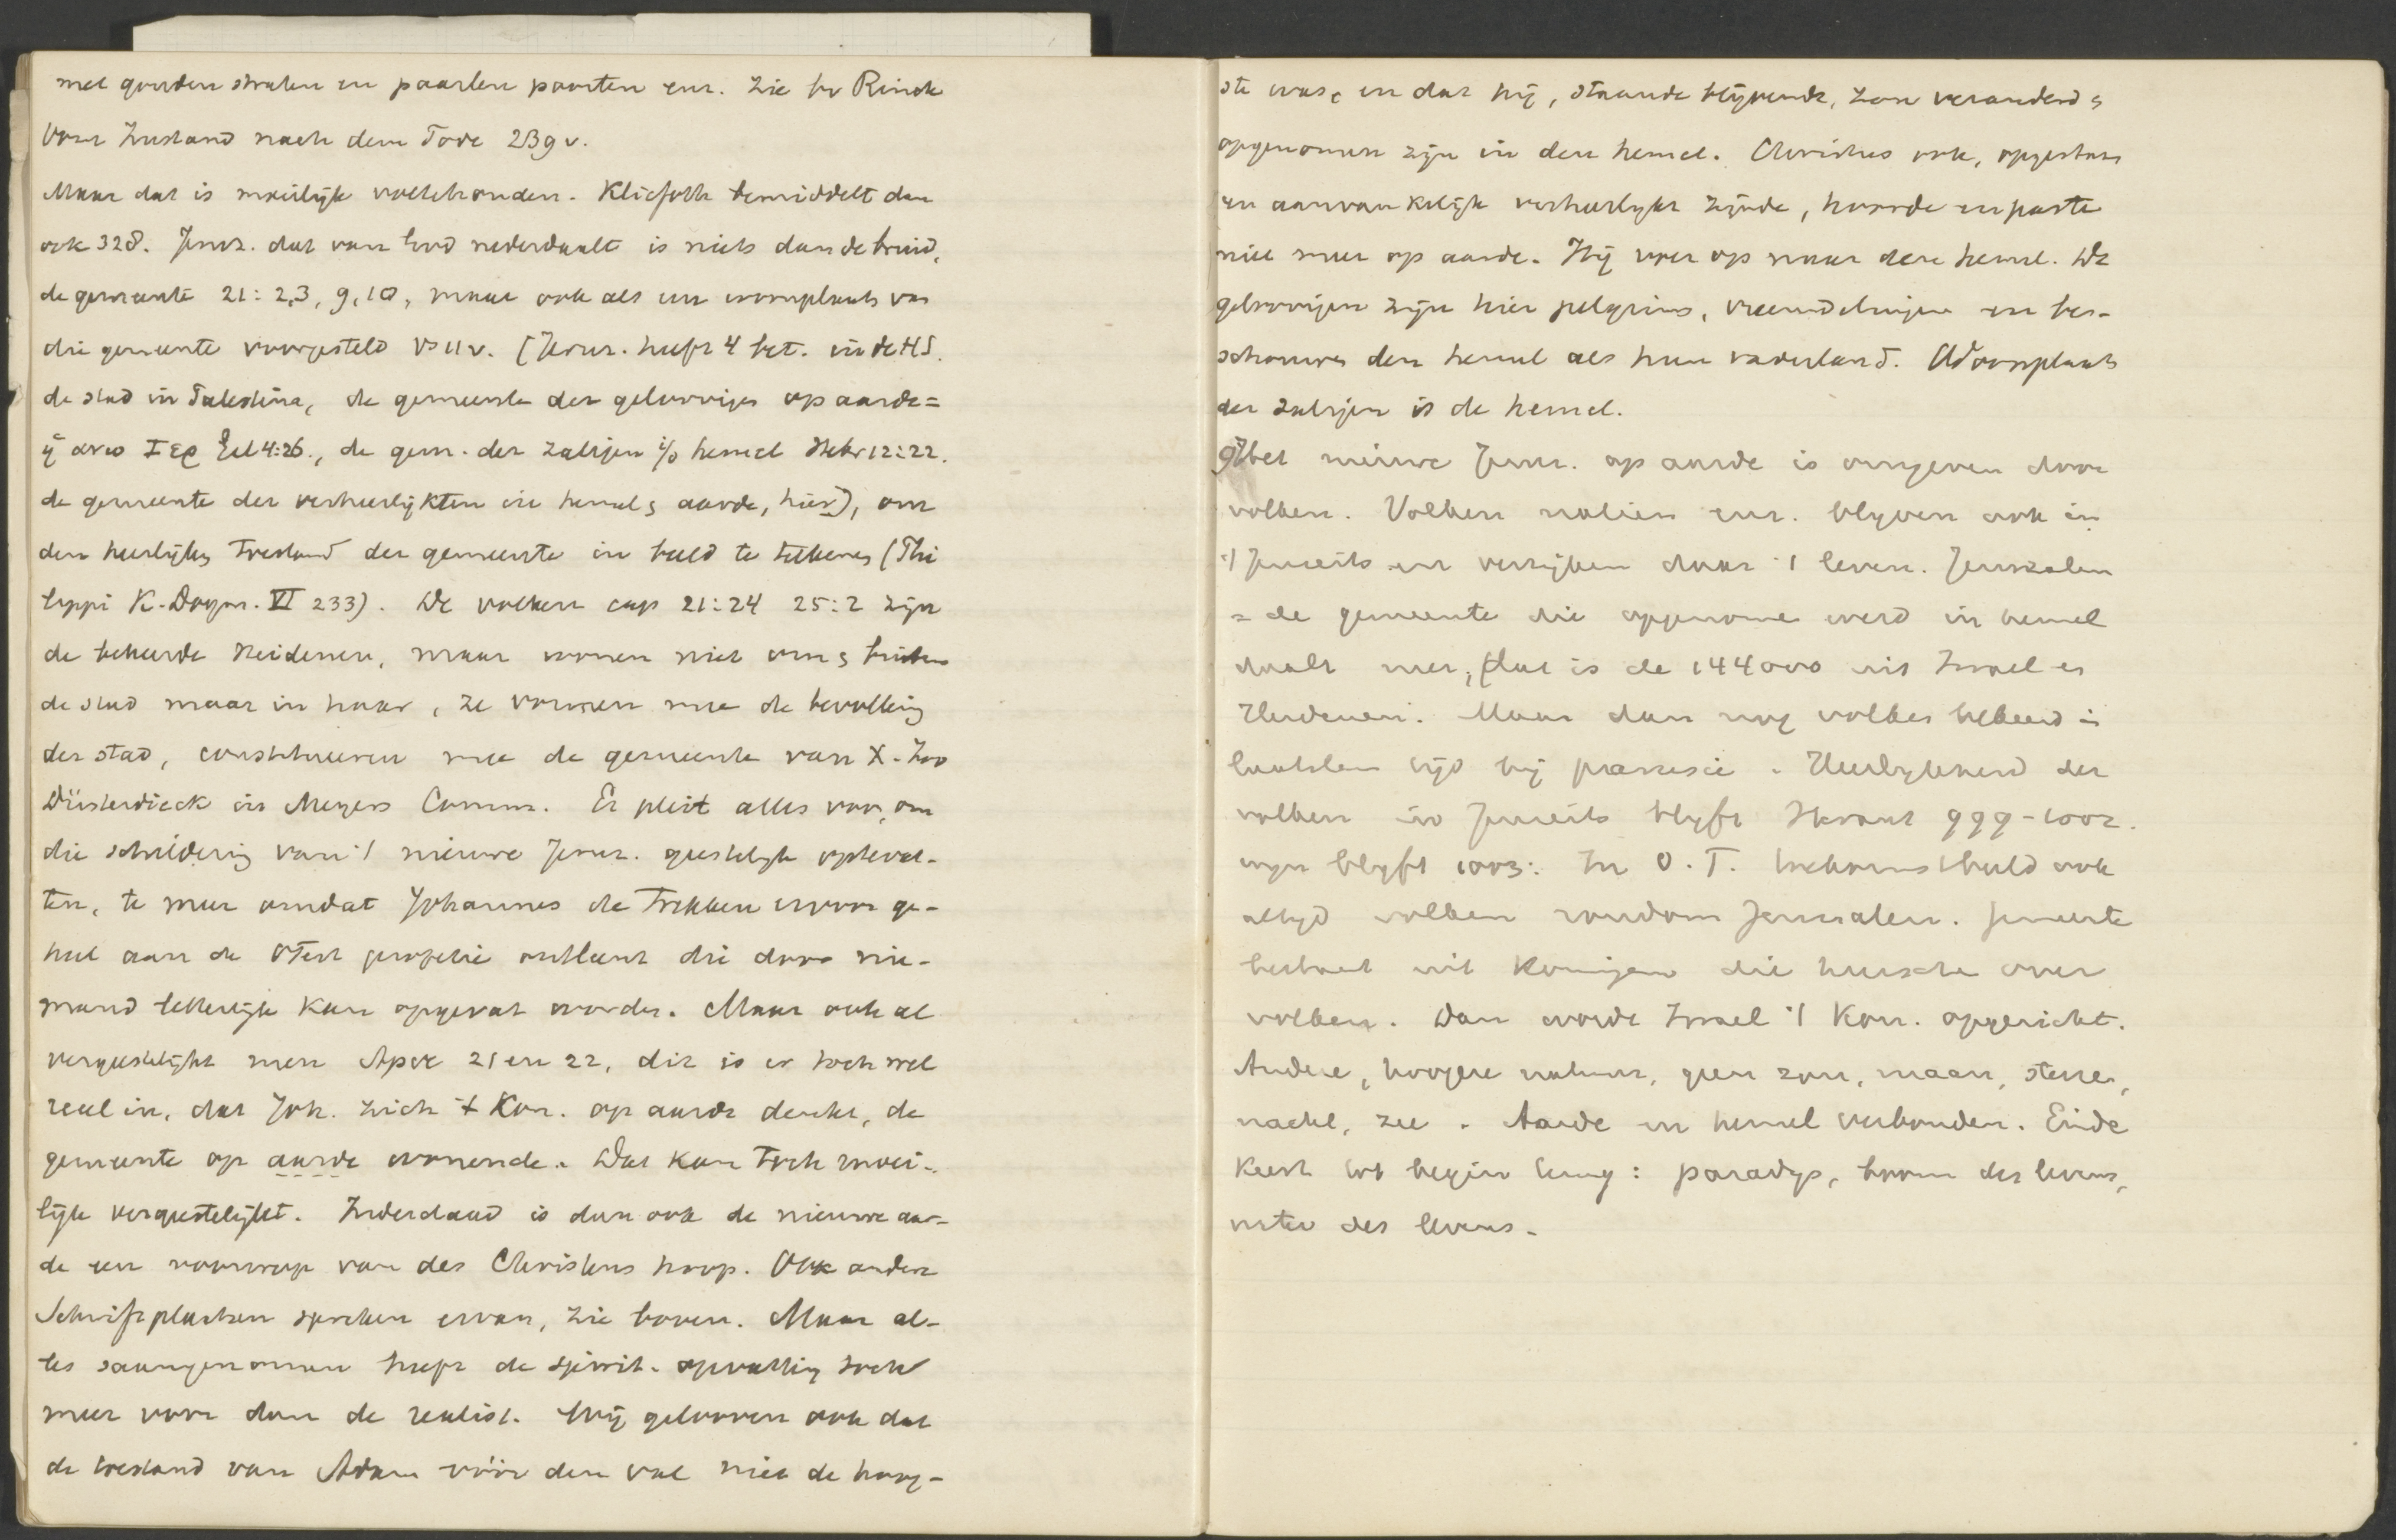 met gouden straten en paarlen poorten enz. Zie bv Rinck
Vom Zustand nach dem Tode 239 v.
Maar dat is moeilijk vol te houden. Kliefoth bemiddelt dan
ook 328. Jeruz. dat van God nederdaalt is niets dan de bruid,
de gemeente 21:2,3, 9,10, maar ook als een woonplaats van
die gemeente voorgesteld vs 11 v. (Jeruz. heeft 4 bet. in de H.S.
de stad in Palestina, de gemeente der geloovigen op aarde =
ἡ ανω Ιερ Gal 4:26., de gem. der zaligen i/d hemel Hebr 12:22.
de gemeente der verheerlijkten in hemel & aarde, hier), om
den heerlijken toestand der gemeente in beeld te teekenen (Phi
lippi K. Dogm. VI 233). De volken cap 21:24 25:2 zijn
de bekeerde Heidenen, maar wonen niet om & buiten
de stad maar in haar, ze vormen mee de bevolking
der stad, constitueeren mee de gemeente van X. Zoo
Düsterdieck in Meyers Comm. Er pleit alles voor, om
die schildering van 't nieuwe Jeruz. geestelijk op te vat-
ten, te meer omdat Johannes de trekken ervoor ge-
heel aan de OTest profetie ontleent die door nie-
mand letterlijk kan opgevat worden. Maar ook al
vergeestelijkt men Apoc 21 en 22, dit is er toch wel
reëel in, dat Joh. zich 't Kon. op aarde denkt, de
gemeente op aarde wonende. Dat kan toch moei-
lijk vergeestelijkt. Inderdaad is dan ook de nieuwe aar-
de een voorwerp van des Christens hoop. Ook andere
Schriftplaatsen spreken ervan, zie boven. Maar al-
les saamgenomen heeft de spirit. opvatting toch
meer voor dan de realist. Wij gelooven ook dat
de toestand van Adam vóór den val niet de hoog-
ste was, en dat hij, staande blijvende, zou veranderd &
opgenomen zijn in den hemel. Christus ook, opgestaan
en aanvankelijk verheerlijkt zijnde, hoorde en paste
niet meer op aarde. Hij voer op naar den hemel. De
geloovigen zijn hier pelgrims, vreemdelingen en bes-
schouwen den hemel als hun vaderland. Woonplaats
der zaligen is de hemel.
Het nieuwe Jeruz. op aarde is omgeven door
volken. Volken natien enz. blijven ook in
't Jenseits en verrijken daar 't leven. Jeruzalem
= de gemeente die opgenomen werd in hemel
daalt neer, (dat is de 144000 uit Israel en
Heidenen. Maar dan nog volken bekeerd in
laatsten tijd bij parousie. Heerlijkheid der
volken in Jenseits blijft 999-1002.
wijn blijft 1003: In O.T. toekomstbeeld ook
altijd volken rondom Jerusalem. Gemeente
bestaat uit Koningen die heerschen over
volken. Dan wordt Israel 't Kon. opgericht.
Andere, hoogere natuur, geen zon, maan, sterren,
nacht, zee. Aarde en hemel verbonden. Einde
keert tot begin terug: paradijs, boom des levens,
water des levens.